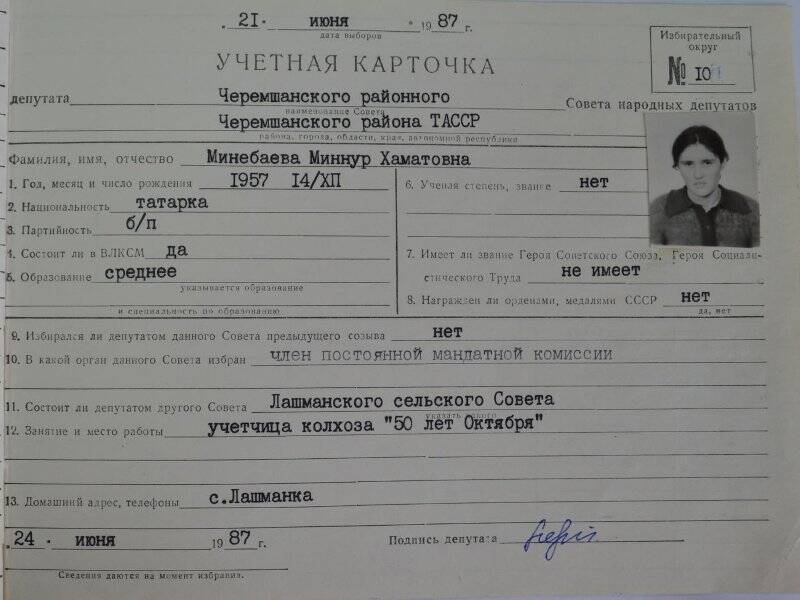 21. июня 1987 г.
дата выборов
Избирательный
округ
№ 10
УЧЕТНАЯ КАРТОЧКА
депутата Черемшанского районного Совета народных депутатов
наименование Совета
Черемшанского района ТАССР
района, города, области, края, автономной республики
Фамилия, имя, отчество Минебаева Миннур Хаматовна
1. Год, месяц и число рождения 1957 14/ХП
2. Национальность татарка
3. Партийность б/п
4. Состоит ли в ВЛКСМ да
5. Образование среднее
указывается образование
и специальность по образованию
6. Ученая степень, звание нет
7. Имеет ли звание Героя Советского Союза, Героя Социали-
стического Труда не имеет
8. Награжден ли орденами, медалями СССР нет
да, нет
9. Избирался ли депутатом данного Совета предыдущего созыва нет
10. В какой орган данного Совета избран член постоянной мандатной комиссии
11. Состоит ли депутатом другого Совета Лашманского сельского Совета
указать какого
12. Занятие и место работы учетчица колхоза "50 лет Октября"
13. Домашний адрес, телефоны с.Лашманка
24 . июня 1987 г.
Подпись депутата
Сведения даются на момент избрания.